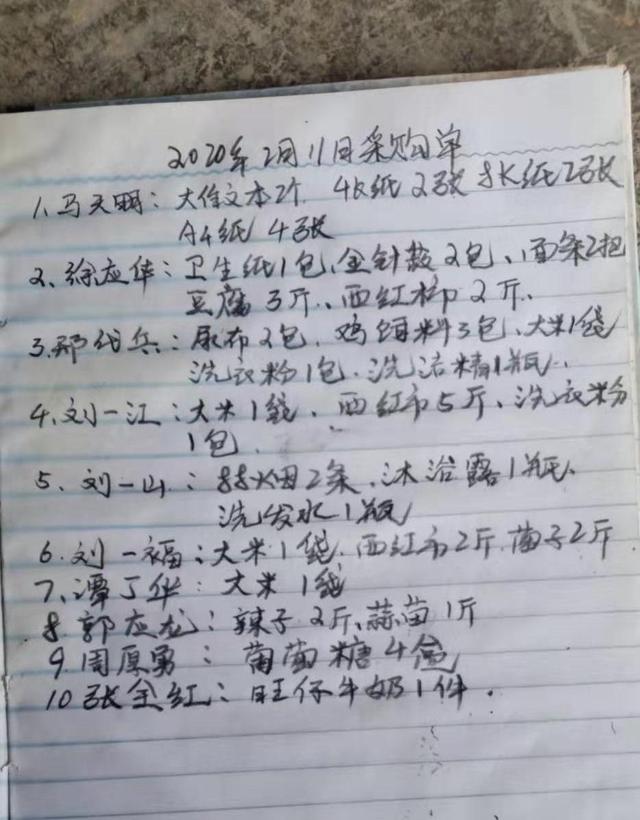 2020年2月11日采购单
1.马天明：大作文本2个 4K纸2张 8K纸2张
A4纸 4张
2、徐应华：卫生纸1包、金针菇2包、面条2把
豆腐3斤、西红柿2斤、
3.邢代兵：尿布2包、鸡饲料3包、大米1袋
洗衣粉1包、洗洁精1瓶、
4、刘一江：大米1袋、西红市5斤、洗衣粉
1包、
5、刘一山：88烟2条、沐浴露1瓶、
洗发水1瓶
6.刘一福：大米1袋、西红市2斤 茄子2斤
7、谭丁华：大米1袋
8.郭应龙：辣子2斤、蒜苗1斤
9.周厚勇：葡萄糖4盒
10张全红：旺仔牛奶1件.